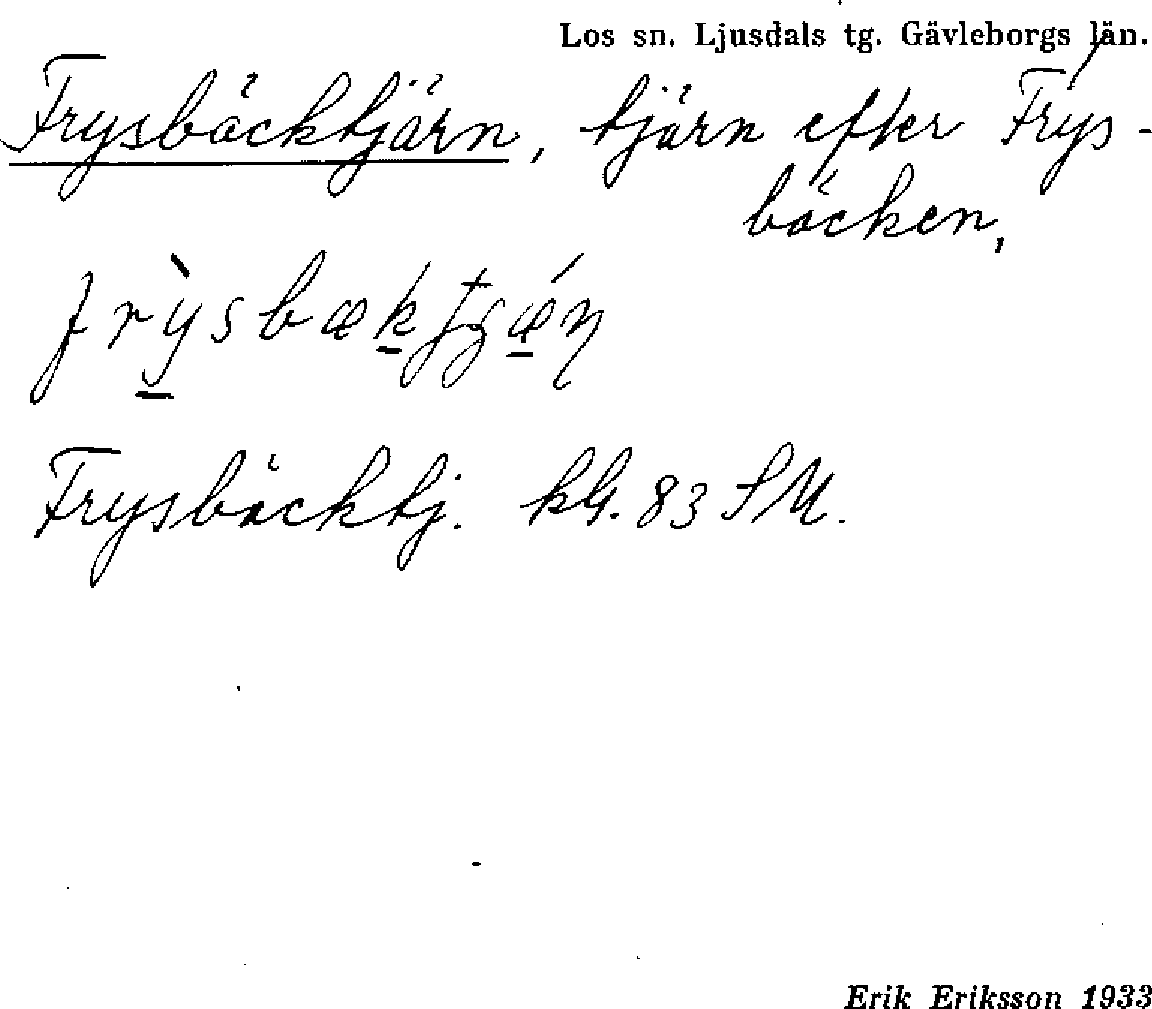 Los sn. Ljusdals tg. Gävleborgs län.
Frysbäcktjärn, tjärn efter Frys-
bäcken,
Frysbäcktj. kbl. 83 SM.
Erik Eriksson 1933